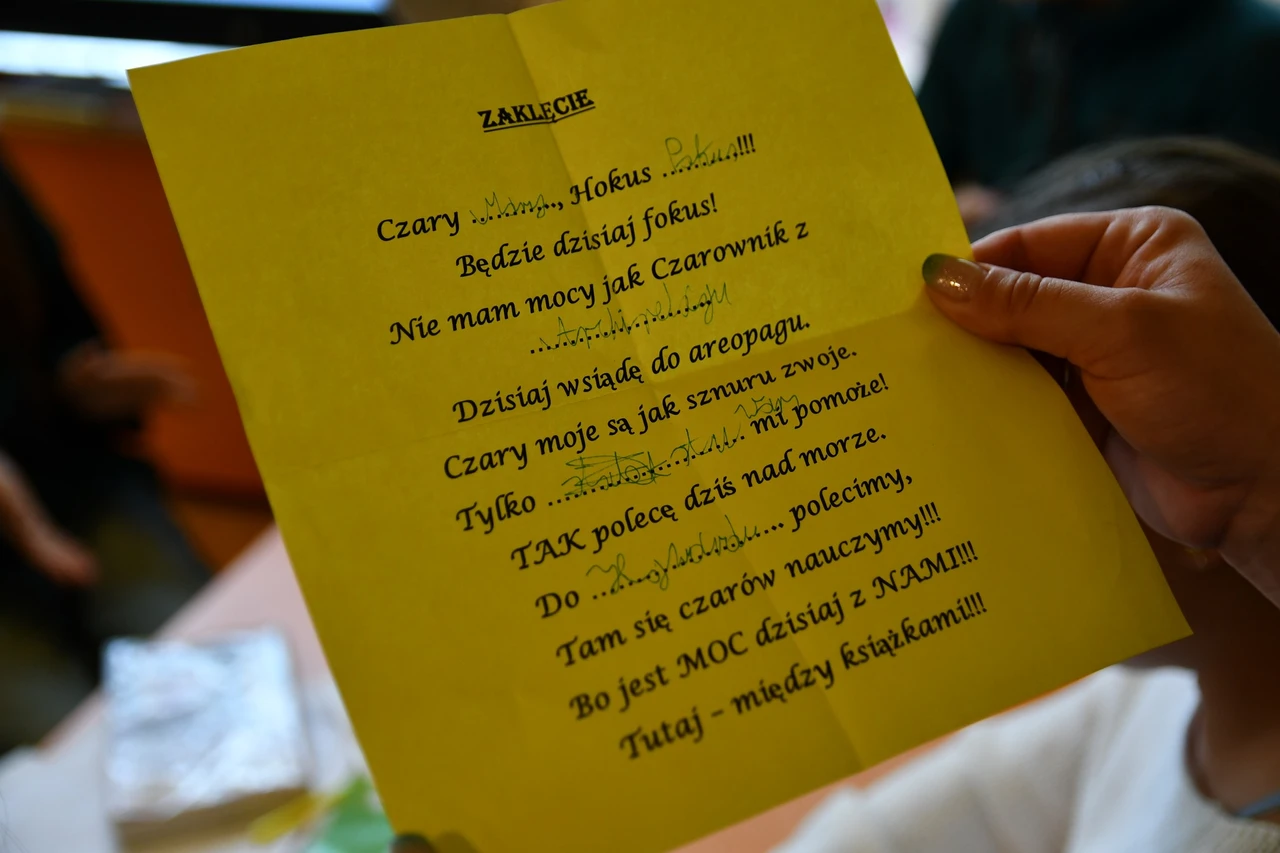 ZAKLĘCIE
Czary .Mary.., Hokus .Pokus.!!!
Będzie dzisiaj fokus!
Nie mam mocy jak Czarownik z
...Archipelagu
Dzisiaj wsiądę do areopagu.
Czary moje są jak sznuru zwoje.
Tylko ... mi pomoże!
TAK polecę dziś nad morze.
Do ..Hogwardu... polecimy,
Tam się czarów nauczymy!!!
Bo jest MOC dzisiaj z NAMI!!!
Tutaj – między książkami!!!